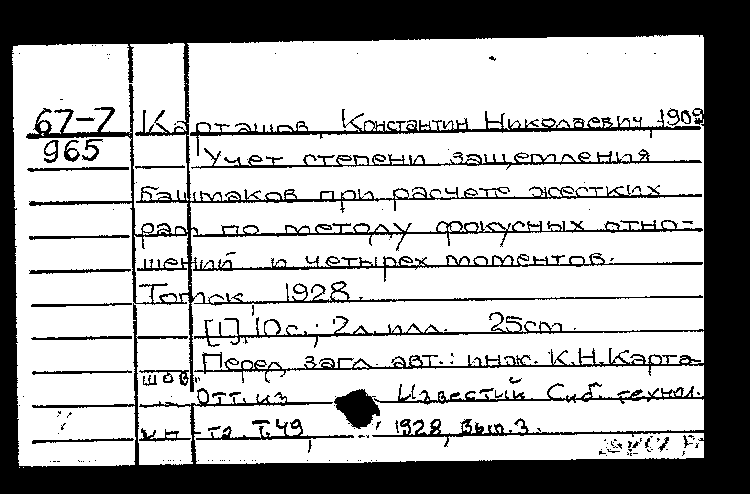 67-7 Карташов, Константин Николаевич, 1909
965 Учет степени защемления
башмаков при расчете жестких
рам по методу фокусных отно-
шений и четырех моментов.
Томск, 1928.
[1], 10 с.; 2 л. илл. 25 cm.
Перед загл. авт.: инж. К.Н. Карта-
шов.
Отт. из Известий Сиб. технол.
ин-та. Т. 49, 1928, Вып. 3.